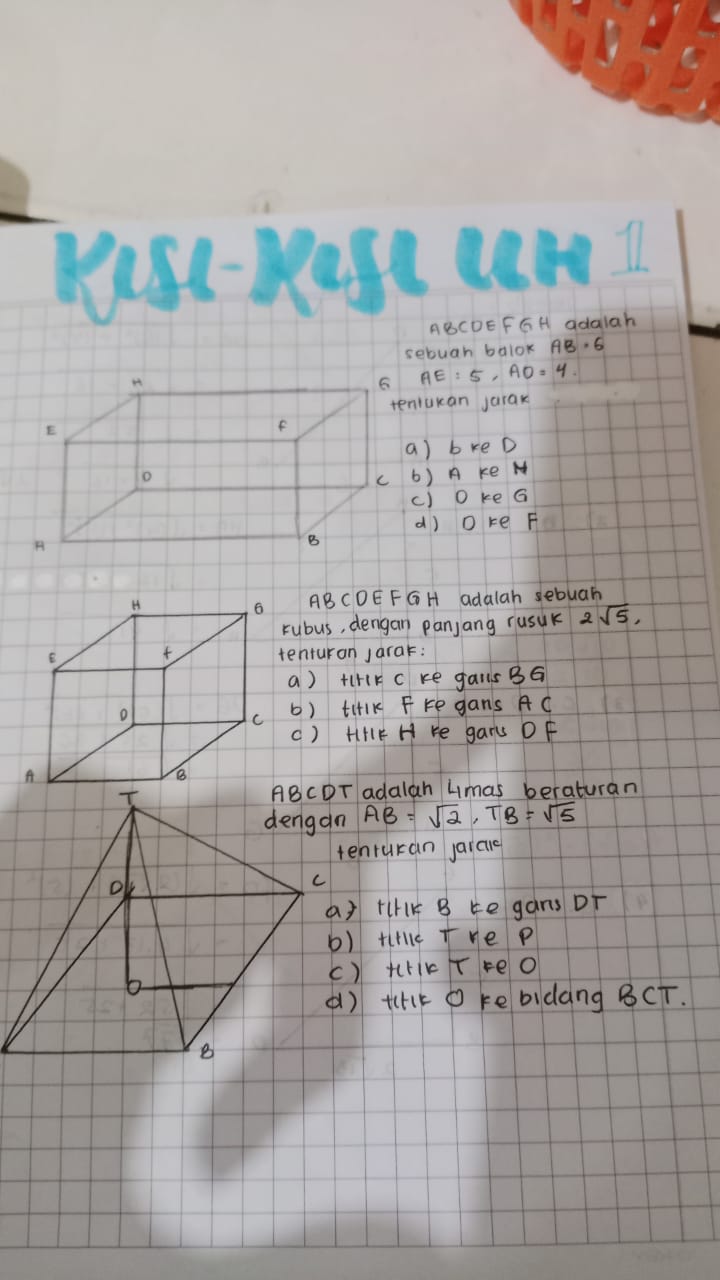 KISI-KISI UH 1
ABCDEFGH adalah
sebuah balok AB = 6
AE : 5 , AD = 4.
tentukan jarak
a) b ke D
b) A ke H
c) D ke G
d) D ke F
H
G
E
F
D
C
A
B
ABCDEFGH adalah sebuah
kubus, dengan panjang rusuk 2√5,
tentukan jarak:
a) titik C ke garis BG
b) titik F ke garis AC
c) titik H ke garis DF
H
G
E
F
D
C
A
B
ABCDT adalah Limas beraturan
dengan AB = √2, TB = √5
tentukan jarak
a) titik B ke garis DT
b) titik T ke P
c) titik T ke O
d) titik O ke bidang BCT.
T
D
C
O
B